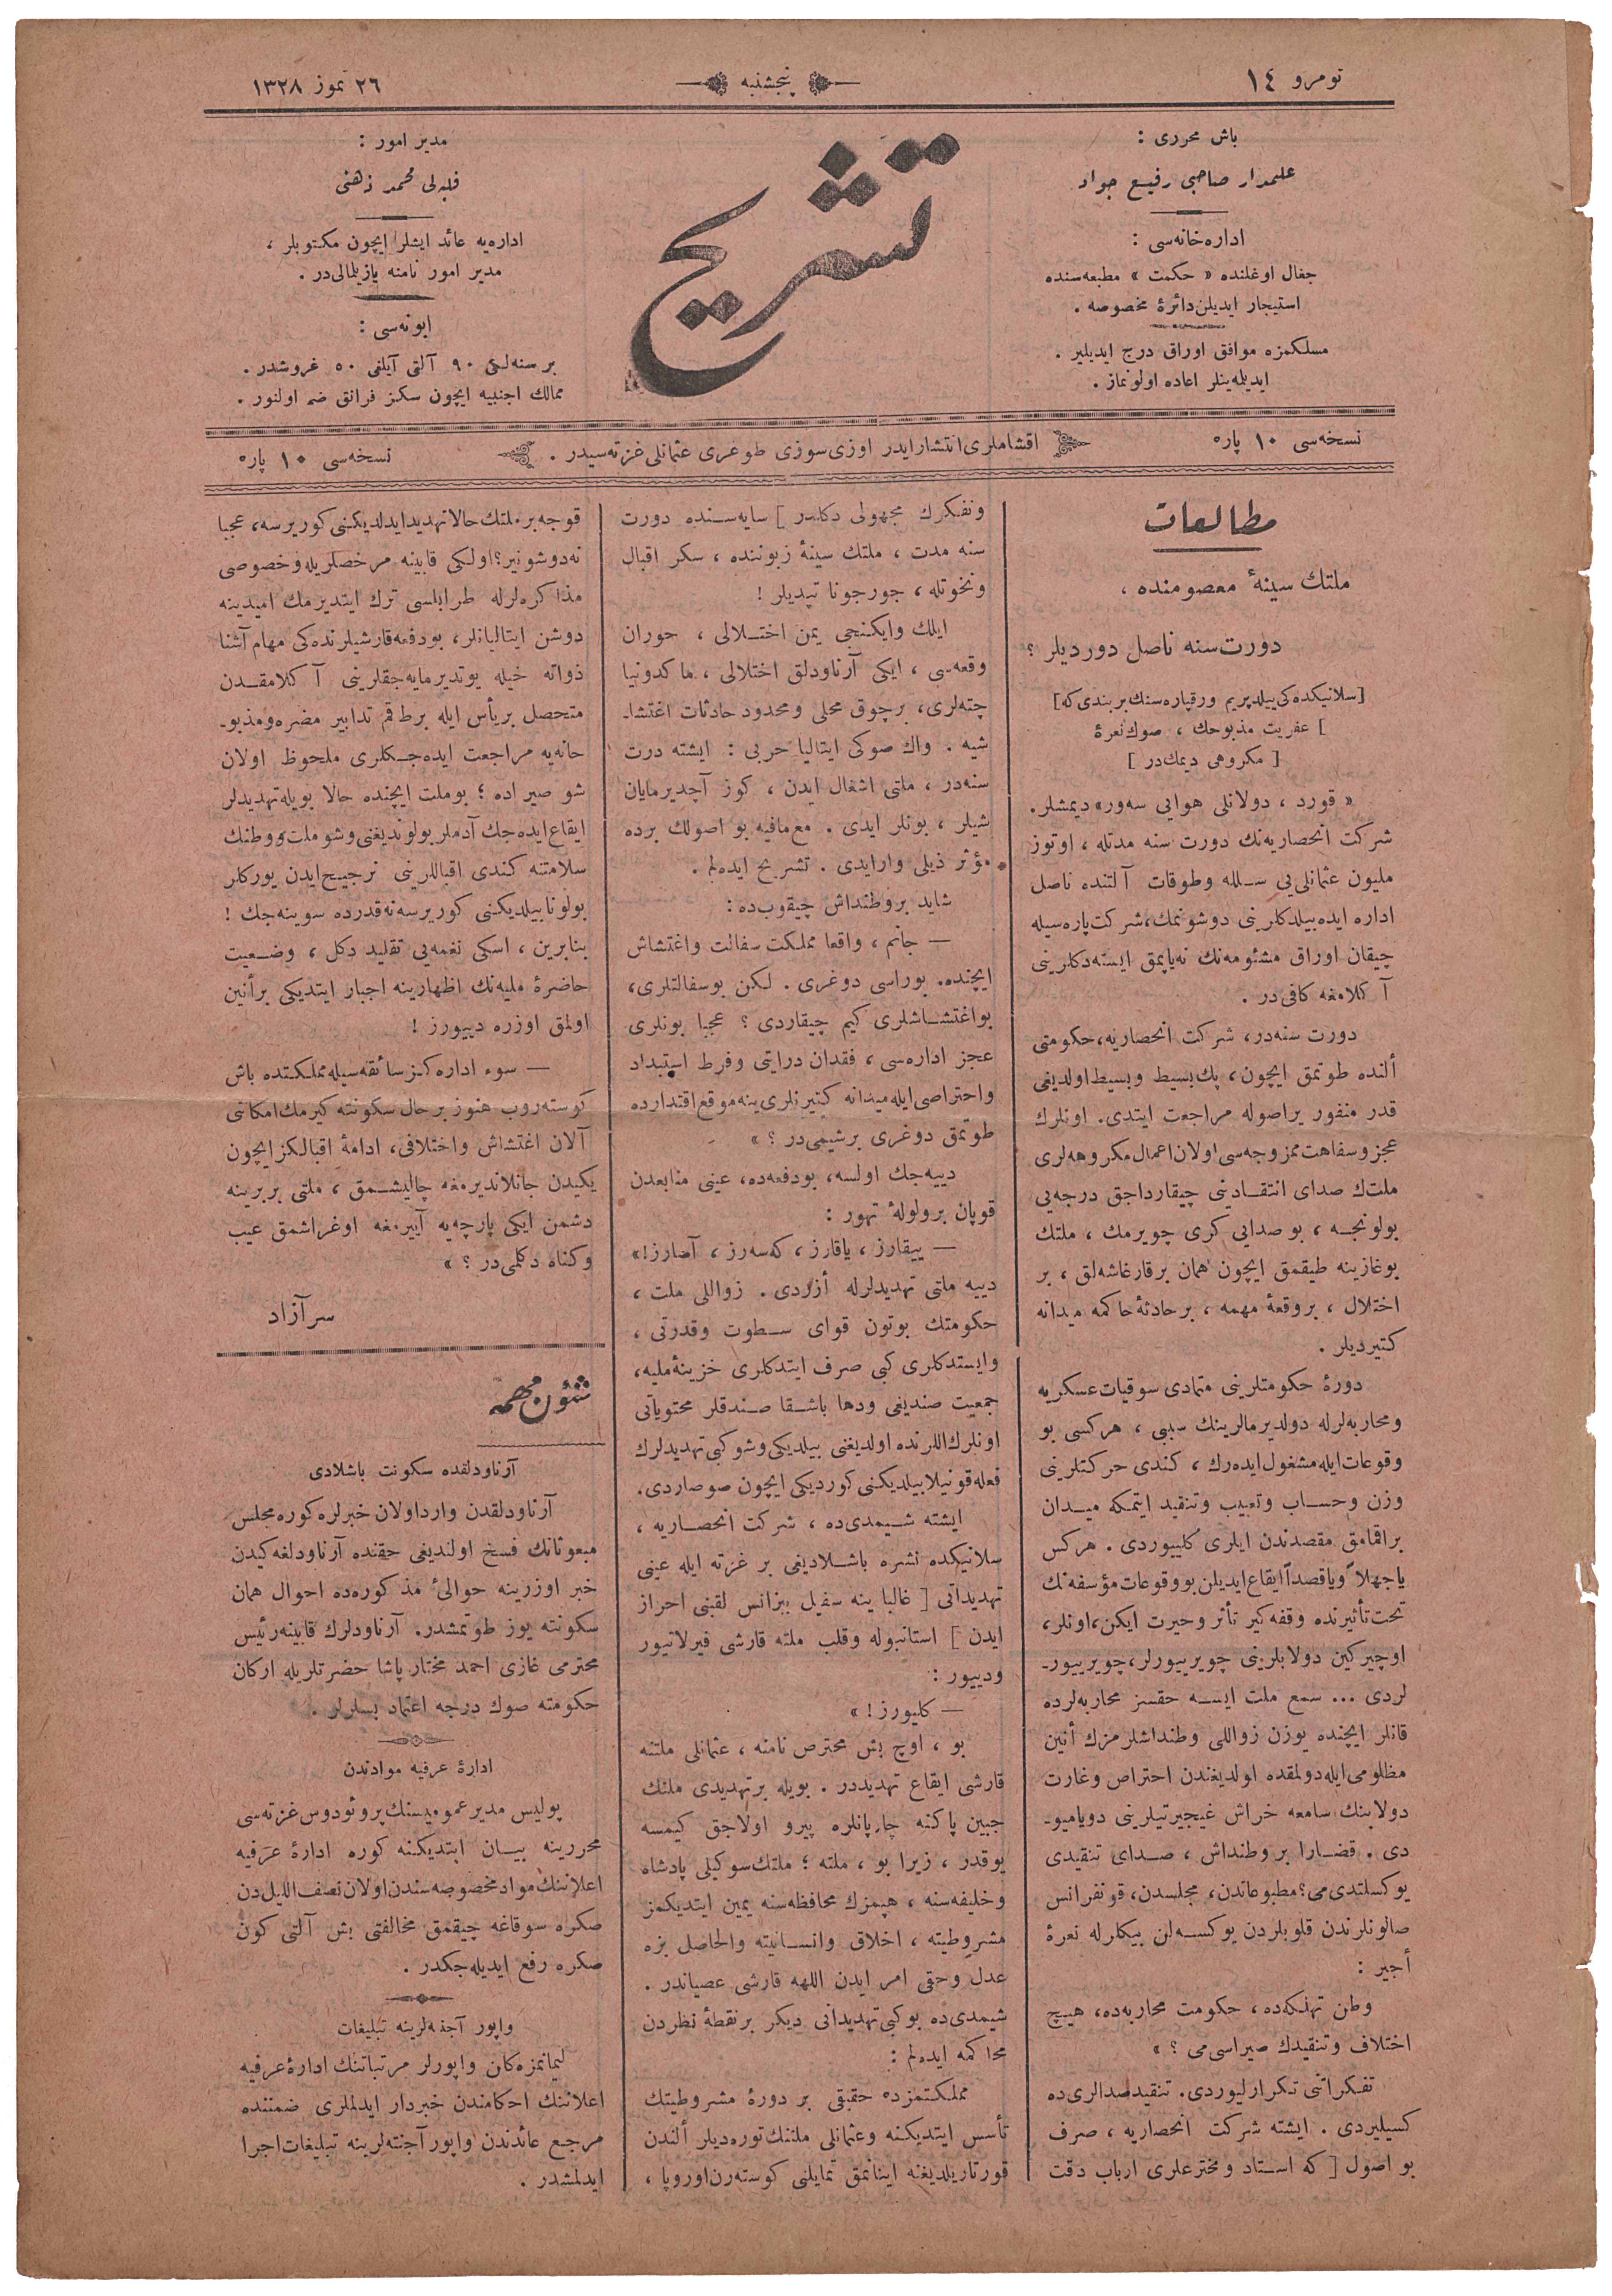 نومرو ١٤
پنجشنبه
٢٦ تموز ١٣٢٨
باش محرری :
علمدار صاحبی رفیع جواد
اداره‌خانه‌سی :
جغال اوغلنده « حكمت » مطبعه‌سنده
استیجار ایدیلن دائرهٔ مخصوصه .
مسلكمزه موافق اوراق درج ایدیلیر .
ایدیله‌ینلر اعاده اولونماز .
تشریح
مدیر امور :
قله‌لی محمد ذهنی
اداره‌یه عائد ایشلر ایچون مكتوبلر ،
مدیر امور نامنه یازیلمالی‌در .
ابونه‌سی :
بر سنه‌لكی ٩٠ آلتی آیلغی ٥٠ غروشدر .
ممالك اجنبیه ایچون سكز فرانق ضم اولنور .
نسخه‌سی ١٠ پاره
اقشاملری انتشار ایدر اوزی سوزی طوغری عثمانلی غزته‌سیدر .
نسخه‌سی ١٠ پاره
مطالعات
ملتك سینهٔ معصومنده ،
دورت سنه ناصل دوردیلر ؟
[سلانیكده‌كی ییلدیریم ورقپاره‌سنك بر بندی كه]
[ عفریت مذبوحك ، صوك نعرهٔ
[ مكروهی دیمك‌در ]
« قورد ، دولانلی هوایی سه‌ور» دیمشلر.
شركت انحصاریه‌نك دورت سنه مدتله ، اوتوز
ملیون عثمانلی‌یی سلله وطوقات آلتنده ناصل
اداره ایده‌بیلدكلرینی دوشونمك، شركت پاره‌سیله
چیقان اوراق مشئومه‌نك نه‌یاپمق ایسته‌دكلرینی
آكلامغه كافی‌در .
دورت سنه‌در، شركت انحصاریه، حكومتی
ألنده طوتمق ایچون، پك بسیط وبسیط اولدیغی
قدر منفور براصوله مراجعت ایتدی. اونلرك
عجز وسفاهت ممزوجه‌سی اولان اعمال مكروهه‌لری
ملت‌ك صدای انتقادینی چیقارداجق درجه‌یی
بولونجه ، بو صدایی كری چویرمك ، ملتك
بوغازینه طیقمق ایچون همان برقارغاشه‌لق ، بر
اختلال ، بروقعهٔ مهمه ، برحادثهٔ حاكمه میدانه
كتیردیلر .
دورهٔ حكومتلرینی متمادی سوقیات عسكریه
ومحاربه‌لرله دولدیرمالرینك سببی ، هركسی بو
وقوعات ایله مشغول ایده‌رك ، كندی حركتلرینی
وزن وحساب وتعییب وتنقید ایتمكه میدان
براقمامق مقصدندن ایلری كلییوردی . هركس
یاجهلاً ویاقصداً ایقاع ایدیلن بو وقوعات مؤسفه‌نك
تحت تأثیرنده وقفه‌كیر تأثر وحیرت ایكن، اونلر،
اوچیركین دولابلرینی چویرییورلر، چویرییور-
لردی ... سمع ملت ایسه حقسز محاربه‌لرده
قانلر ایچنده یوزن زواللی وطنداشلرمزك أنین
مظلومی ایله دولمقده اولدیغندن احتراص وغارت
دولابنك سامعه خراش غیجیرتیلرینی دویامیو-
دی . قضارا بر وطنداش ، صدای تنقیدی
یوكسلتدی می؟ مطبوعاتدن، مجلسدن، قونفرانس
صالونلرندن قلوبلردن یوكسه‌لن بیكلرله نعرهٔ
أجیر :
وطن تهلكه‌ده، حكومت محاربه‌ده، هیچ
اختلاف وتنقیدك صیراسی‌می ؟ »
تفكراتنی تكرارلیوردی. تنقید صدالری‌ده
كسیلیردی . ایشته شركت انحصاریه ، صرف
بو اصول [ كه استاد ومخترعلری ارباب دقت
ونفكرك مجهولی دكلدر ] سایه‌سنده دورت
سنه مدت ، ملتك سینهٔ زبوننده ، سكر اقبال
ونخوتله ، جورجونا تپدیلر !
ایلك وایكنجی یمن اختلالی ، حوران
وقعه‌سی ، ایكی آرناودلق اختلالی ، ماكدونیا
چته‌لری، برچوق محلی ومحدود حادثات اغتشا-
شیه . واك صوكی ایتالیا حربی : ایشته درت
سنه‌در ، ملتی اشغال ایدن ، كوز آچدیرمایان
شیلر ، بونلر ایدی . مع‌مافیه بو اصولك برده
مؤثر ذیلی وارایدی . تشریح ایده‌لم .
شاید بروطنداش چیقوب‌ده :
— جانم ، واقعا مملكت سفالت واغتشاش
ایچنده. بوراسی دوغری . لكن بوسفالتلری،
بواغتشاشلری كیم چیقاردی ؟ عجبا بونلری
عجز اداره‌سی ، فقدان درایتی وفرط استبداد
واحتراصی ایله میدانه كتیرنلری ینه موقع اقتدارده
طوتمق دوغری برشیمی‌در ؟ »
دییه‌جك اولسه، بودفعه‌ده، عینی منابعدن
قوپان برولولهٔ تهور :
— ییقارز ، یاقارز ، كه‌سه‌رز ، آصارز!»
دییه ملتی تهدیدلرله أزردی . زواللی ملت ،
حكومتك بوتون قوای سطوت وقدرتی ،
وایستدكلری كبی صرف ایتدكلری خزینهٔ ملیه،
جمعیت صندیغی ودها باشقا صندقلر محتویاتی
اونلرك اللرنده اولدیغنی بیلدیكی وشو كبی تهدیدلرك
فعله قونیلابیلدیكنی كوردیكی ایچون صوصاردی.
ایشته شیمدی‌ده ، شركت انحصاریه ،
سلانیكده نشره باشلادیغی بر غزته ایله عینی
تهدیداتی [ غالبا ینه سفیل بیزانس لقبنی احراز
ایدن ] استانبوله وقلب ملته قارشی فیرلاتیور
ودییور :
— كلیورز ! »
بو ، اوچ بش محترص نامنه ، عثمانلی ملتنه
قارشی ایقاع تهدیددر . بویله برتهدیدی ملتك
جبین پاكنه چارپانلره پیرو اولاجق كیمسه
یوقدر ، زیرا بو ، ملته ؛ ملتك سوكیلی پادشاه
وخلیفه‌سنه ، هپمزك محافظه‌سنه یمین ایتدیكمز
مشروطیته ، اخلاق وانسانیته والحاصل بزه
عدل وحقی امر ایدن اللهه قارشی عصیاندر .
شیمدی‌ده بوكبی تهدیداتی دیكر برنقطهٔ نظردن
محاكمه ایده‌لم :
مملكتمزده حقیقی بر دورهٔ مشروطیتك
تأسس ایتدیكنه وعثمانلی ملتنك توره‌دیلر ألندن
قورتاریلدیغنه اینانمق تمایلنی كوسته‌رن اوروپا ،
قوجه برملتك حالا تهدید ایدلدیكنی كوررسه، عجبا
نه‌دوشونیر؟ اولكی قابینه مرخصلریله وخصوصی
مذاكره‌لرله طرابلسی ترك ایتدیرمك امیدینه
دوشن ایتالیانلر، بودفعه قارشیلرنده‌كی مهام آشنا
ذواته خیله یوتدیرمایه‌جقلرینی آكلامقدن
متحصل بریأس ایله برطقم تدابیر مضره ومذبو-
حانه‌یه مراجعت ایده‌جكلری ملحوظ اولان
شو صیراده ؛ بوملت ایچنده حالا بویله تهدیدلر
ایقاع ایده‌جك آدملر بولوندیغنی وشو ملت ووطنك
سلامتنه كندی اقباللرینی ترجیح ایدن یوركلر
بولونابیلدیكنی كوررسه نه‌قدرده سوینه‌جك !
بنابرین ، اسكی نغمه‌یی تقلید دكل ، وضعیت
حاضرهٔ ملیه‌نك اظهارینه اجبار ایتدیكی برأنین
اولمق اوزره دییورز !
— سوء اداره‌كز سائقه‌سیله مملكتده باش
كوسته‌روب هنوز برحال سكونته كیرمك امكانی
آلان اغتشاش واختلافی، ادامهٔ اقبالكز ایچون
یكیدن جانلاندیرمغه چالیشمق ، ملتی بربرینه
دشمن ایكی پارچه‌یه آییرمغه اوغراشمق عیب
وكناه دكلمی‌در ؟ »
سرآزاد
شئون مهمه
آرناودلقده سكونت باشلادی
آرناودلقدن وارد اولان خبرلره كوره مجلس
مبعوثانك فسخ اولندیغی حقنده آرناودلغه كیدن
خبر اوزرینه حوالیٔ مذكوره‌ده احوال همان
سكونته یوز طوتمشدر. آرناودلرك قابینه رئیس
محترمی غازی احمد مختار پاشا حضرتلریله اركان
حكومته صوك درجه اعتماد بسلرلر .
ادارهٔ عرفیه موادندن
پولیس مدیر عمومیسنك پروئودوس غزته‌سی
محررینه بیان ایتدیكنه كوره ادارهٔ عرفیه
اعلاننك مواد مخصوصه‌سندن اولان نصف اللیل‌دن
صكره سوقاغه چیقمق مخالفتی بش آلتی كون
صكره رفع ایدیله‌جكدر .
واپور آجنته‌لرینه تبلیغات
لیمانمزه كلن واپورلر مرتباتنك ادارهٔ عرفیه
اعلاننك احكامندن خبردار ایدلملری ضمننده
مرجع عائدندن واپور آجنته‌لرینه تبلیغات اجرا
ایدلمشدر .